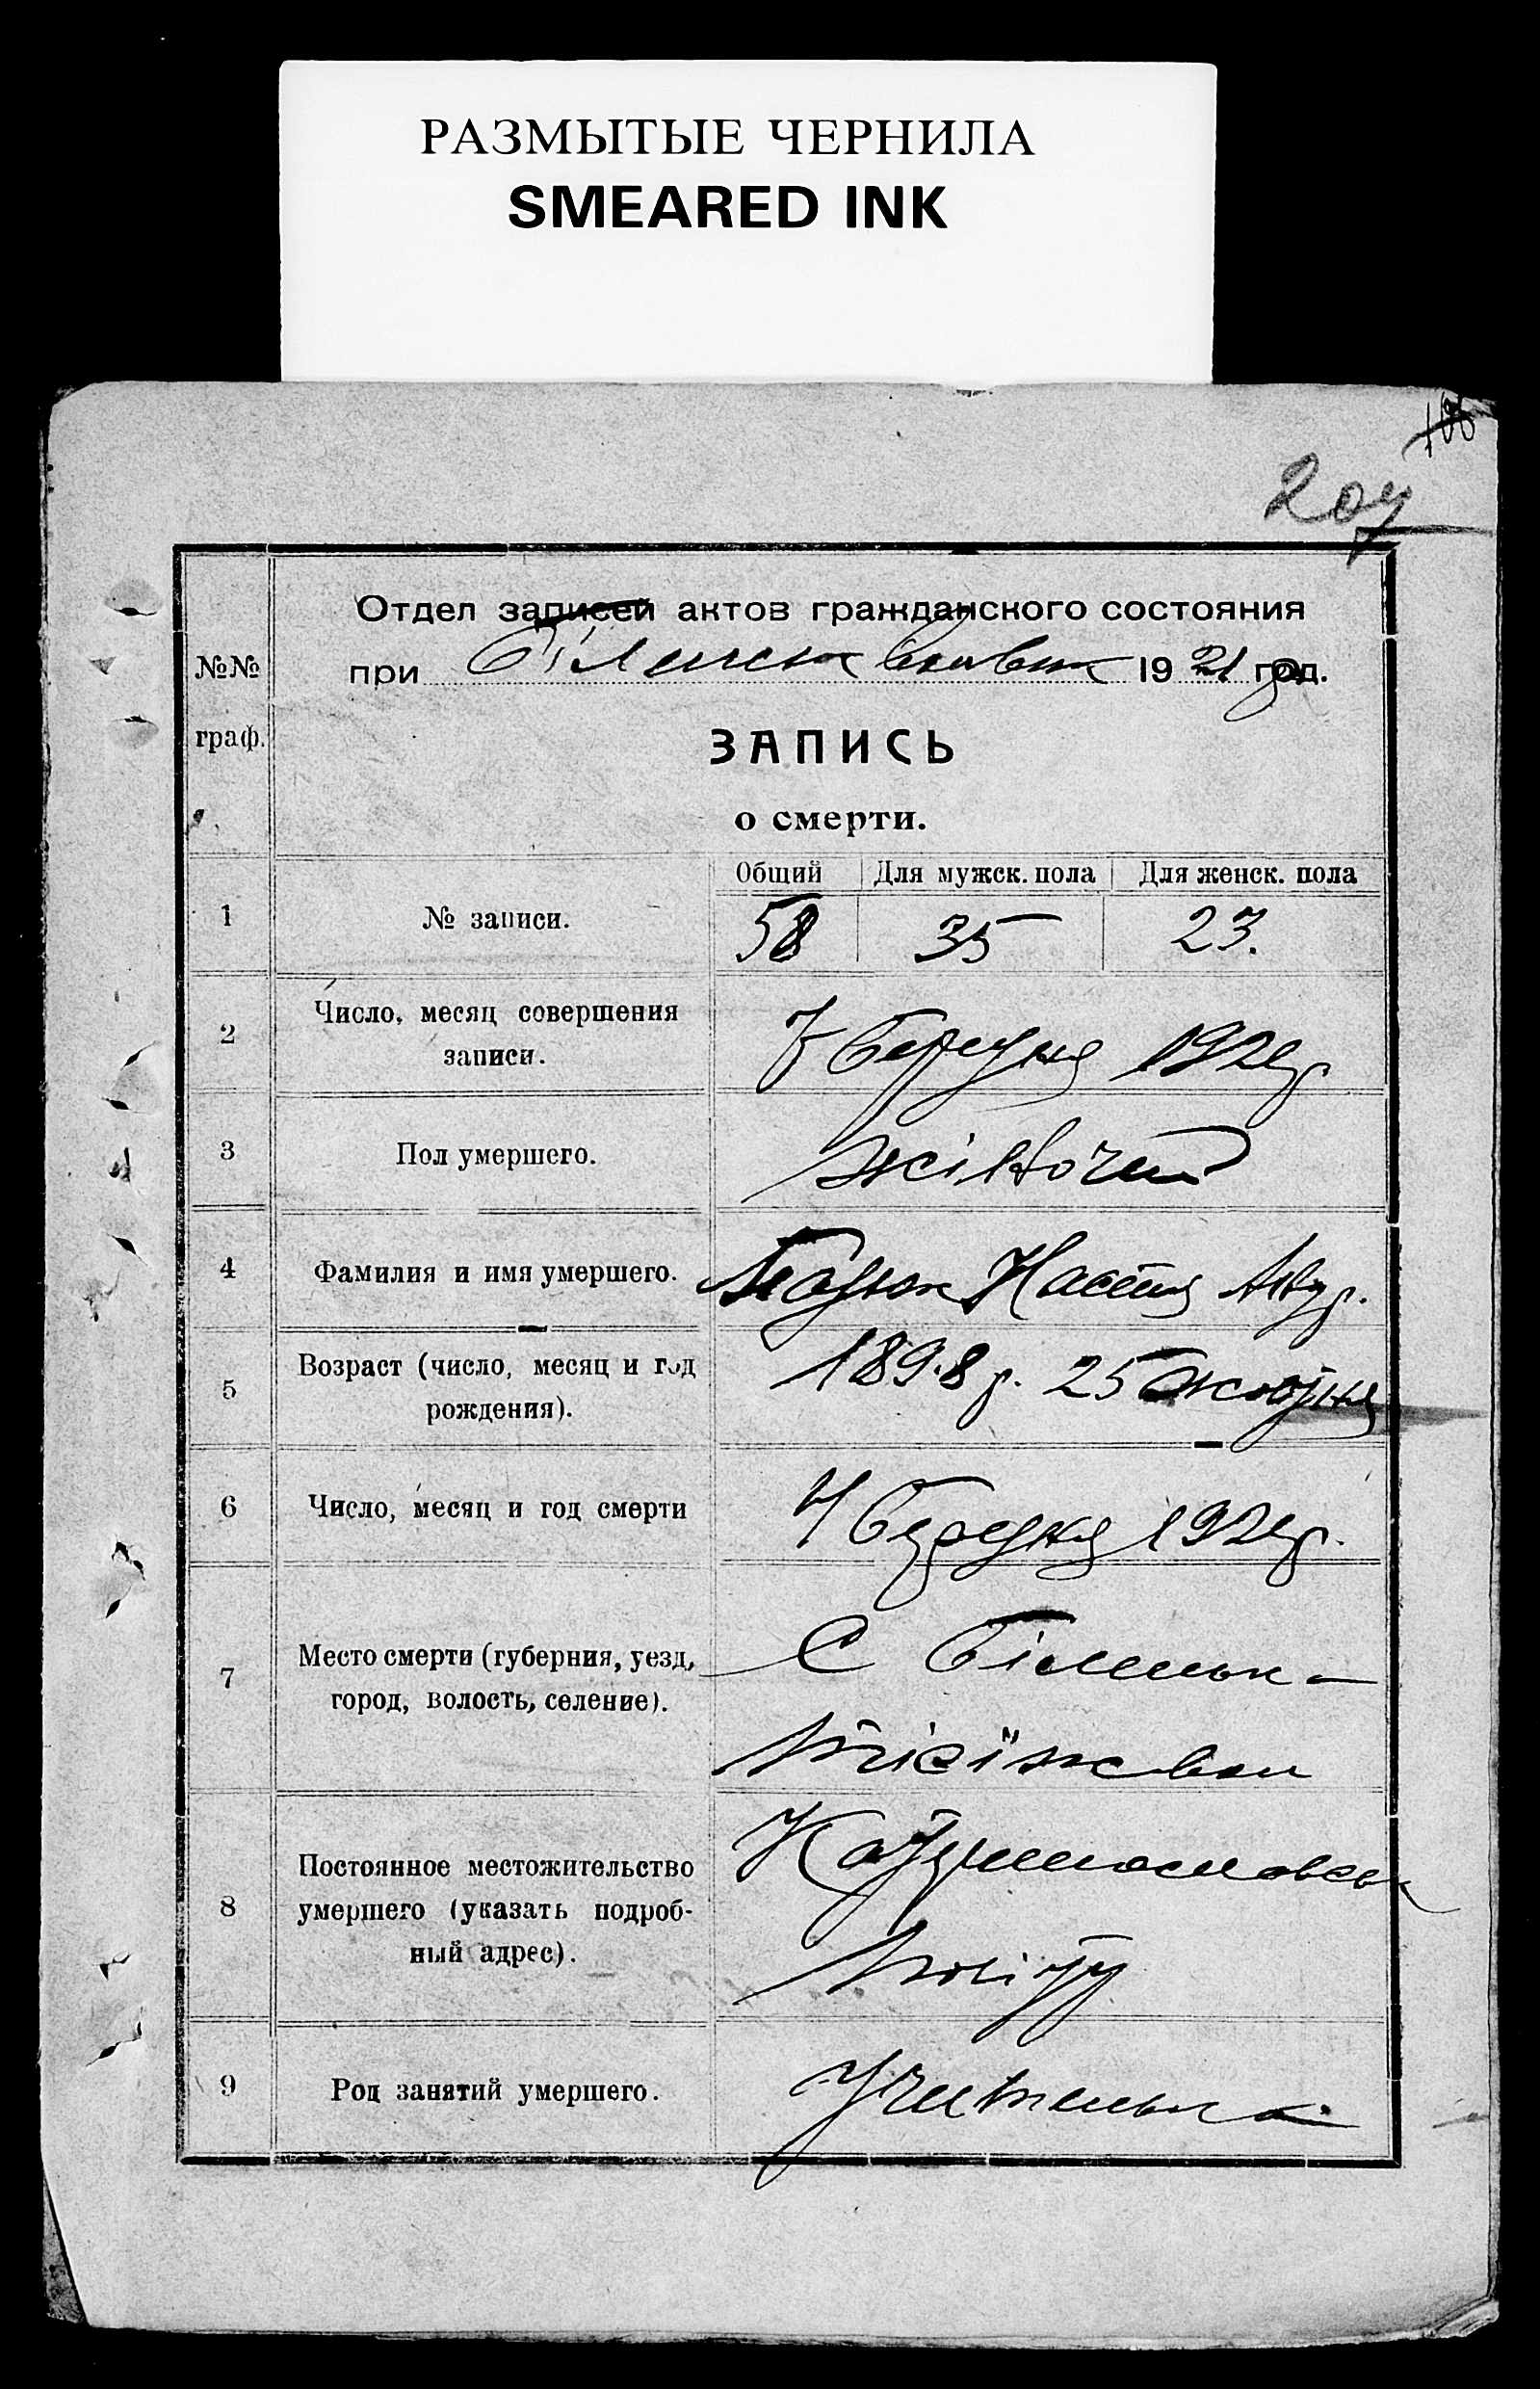 РАЗМЫТЫЕ ЧЕРНИЛА
SMEARED INK
207
№№ граф.
Отдел записей актов гражданского состояния
при 1921 год.
ЗАПИСЬ
о смерти.
Общий Для мужск. пола Для женск. пола
1 № записи. 58 35 23.
2 Число, месяц совершения
записи.
7 березня 1921 р
3 Пол умершего. жіночий
4 Фамилия и имя умершего. Настя
5 Возраст (число, месяц и год
рождения).
1898 р. 25 жовтня
6 Число, месяц и год смерти 4 березня 1921 р.
7 Место смерти (губерния, уезд,
город, волость, селение).
С
8 Постоянное местожительство
умершего (указать подроб-
ный адрес).
повіту
9 Род занятий умершего. Учителька